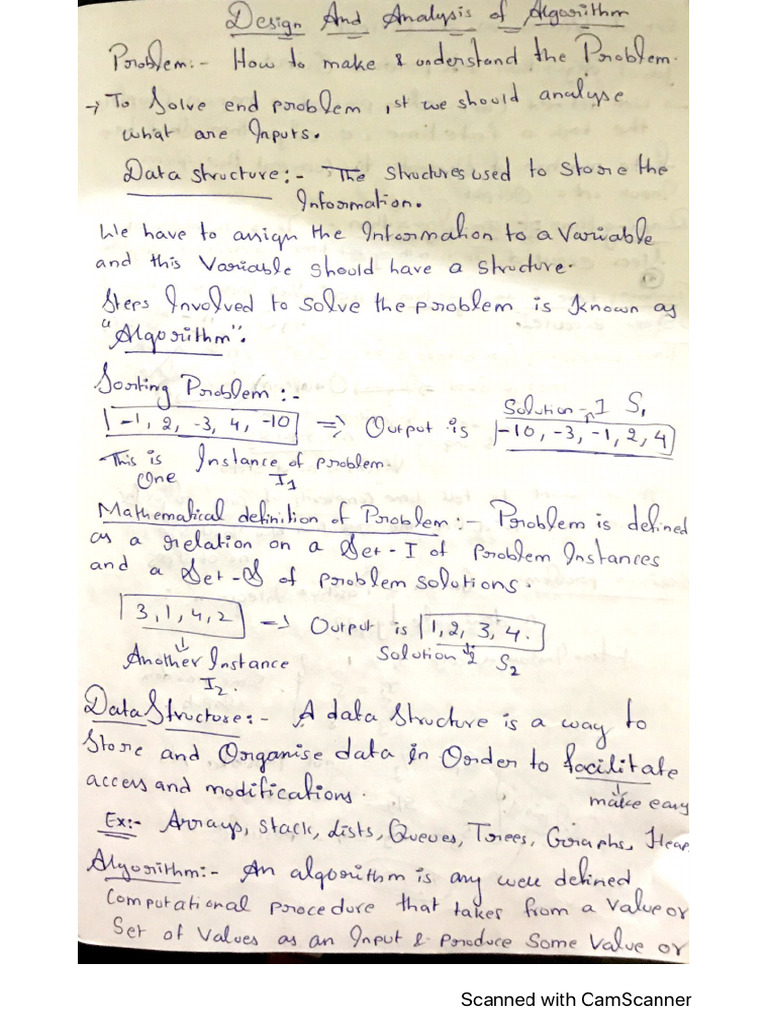 Design And Analysis of Algorithm
Problem:- How to make & understand the Problem.
→ To Solve end problem, 1st we should analyse
what are Inputs.
Data structure:- The Structures used to store the
Information.
We have to assign the Information to a Variable
and this Variable should have a structure.
Steps Involved to solve the problem is known as
"Algorithm".
Sorting Problem:-
Solution-1 S1
-1, 2, -3, 4, -10 => Output is -10, -3, -1, 2, 4
This is Instance of problem.
One I1
Mathematical definition of Problem:- Problem is defined
as a relation on a Set-I of Problem Instances
and a Set-S of problem solutions.
3, 1, 4, 2 => Output is 1, 2, 3, 4.
Another Instance Solution 2 S2
I2.
Data Structure:- A data structure is a way to
Store and Organise data in Order to facilitate
access and modifications.
make easy
Ex:- Arrays, Stack, Lists, Queues, Trees, Graphs, Heap
Algorithm:- An algorithm is any well defined
Computational procedure that takes from a value or
Set of Values as an Input & produce Some Value or
Scanned with CamScanner